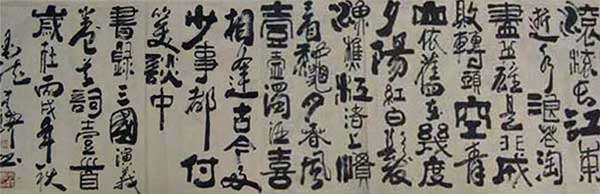 滚滚长江東
逝水浪花淘
盡英雄是非成
敗轉頭空青
山依舊在幾度
夕陽紅白髮
漁樵江渚上慣
看龝月春風
壹壺濁酒喜
相逢古今多
少事都付
笑談中
書録三國演義
卷首詞壹首
歲在丙戌年秋